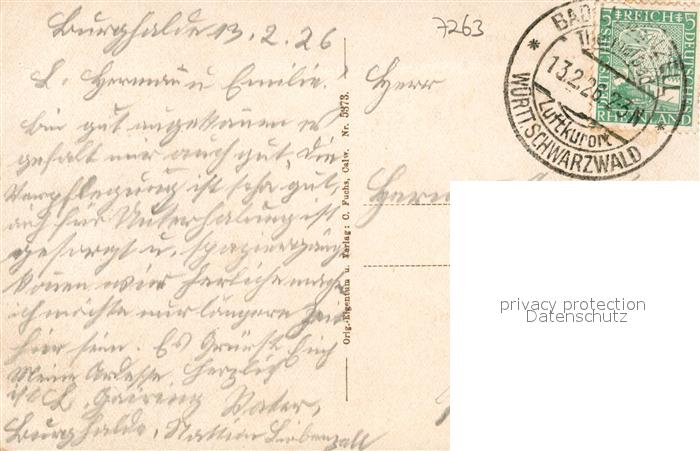 Burghalde 13.2.26
L. Herman u Emilie.
bin gut angekomen es
gefält mir auch gut, Die
Verpflegung ist sehr gut,
auch für Unterhalung ist
gesorgt u. spaziergänge
könen wir herliche mage
ich möchte nur längere Zeit
hier sein. Es Grüsst Euch
Meine Adresse Herzlich
L. Vater,
Burghalde, Station Liebenzell
Orig.-Eigentum u. Verlag: C. Fuchs, Calw. Nr. 5373.
7263
Herr
BAD
13.2.26
Luftkurort
WÜRTT SCHWARZWALD
5 DEUTSCHES REICH 5
RHEINLAND
privacy protection
Datenschutz